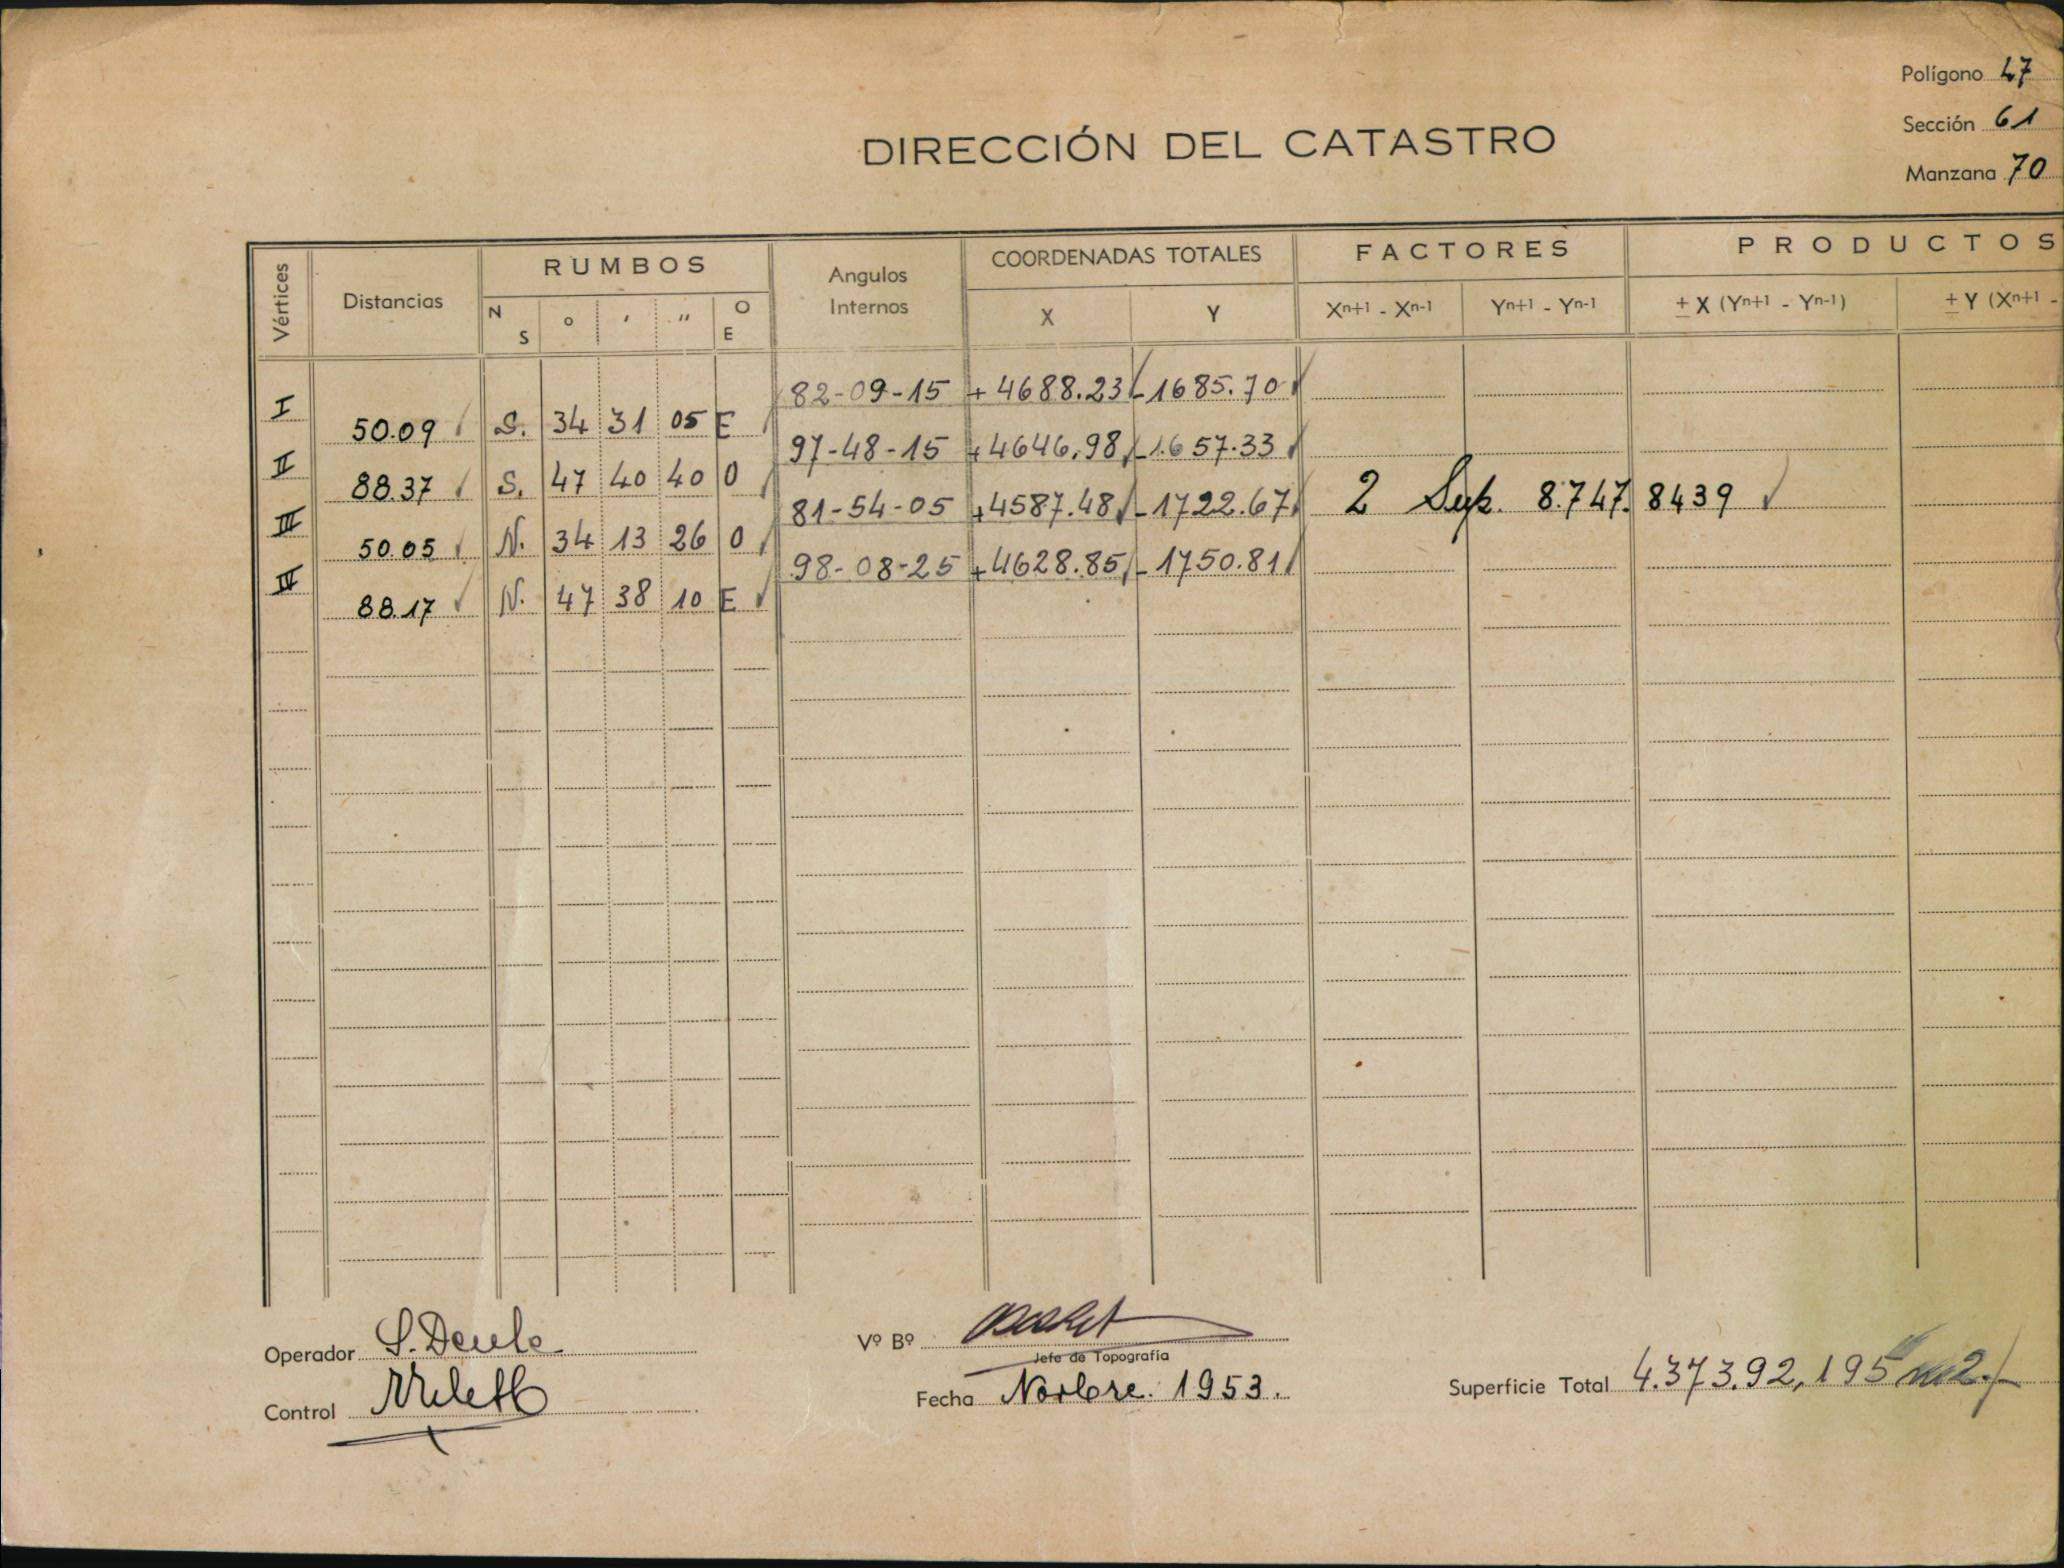 Polígono 47
Sección 61
Manzana 70
DIRECCIÓN DEL CATASTRO
Vértices Distancias RUMBOS Angulos Internos COORDENADAS TOTALES FACTORES PRODUCTOS
N S o ' " O E X Y Xn+1 - Xn-1 Yn+1 - Yn-1 ± X (Yn+1 - Yn-1) ± Y (Xn+1 -
I 82-09-15 +4688.23 -1685.70
50.09 S. 34 31 05 E
II 97-48-15 +4646.98 -1657.33
88.37 S. 47 40 40 O
III 81-54-05 +4587.48 -1722.67 2 Sup. 8.747.8439
50.05 N. 34 13 26 O
IV 98-08-25 +4628.85 -1750.81
88.17 N. 47 38 10 E
Operador S. Deule
Vº Bº
Jefe de Topografía
Control
Fecha Novbre. 1953.
Superficie Total 4.373.92,195 m2.